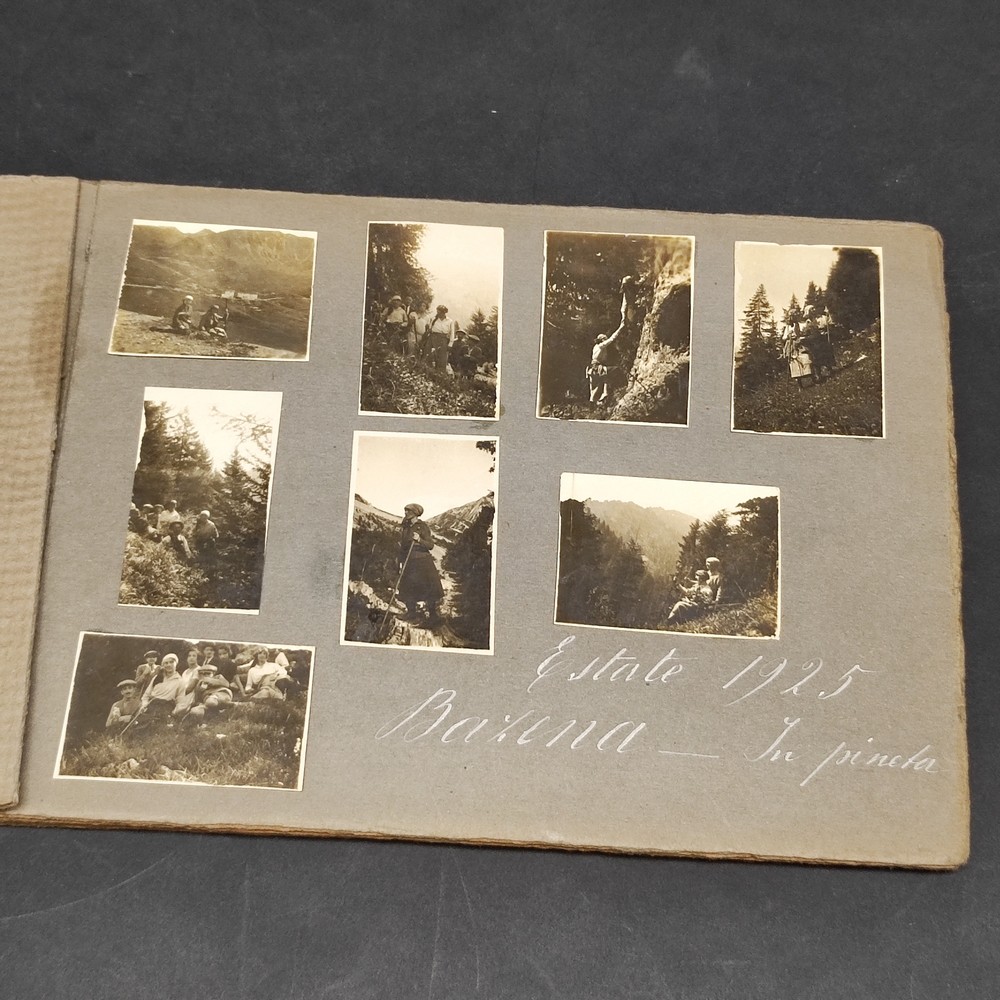 Estate 1925
Bazena — In pineta